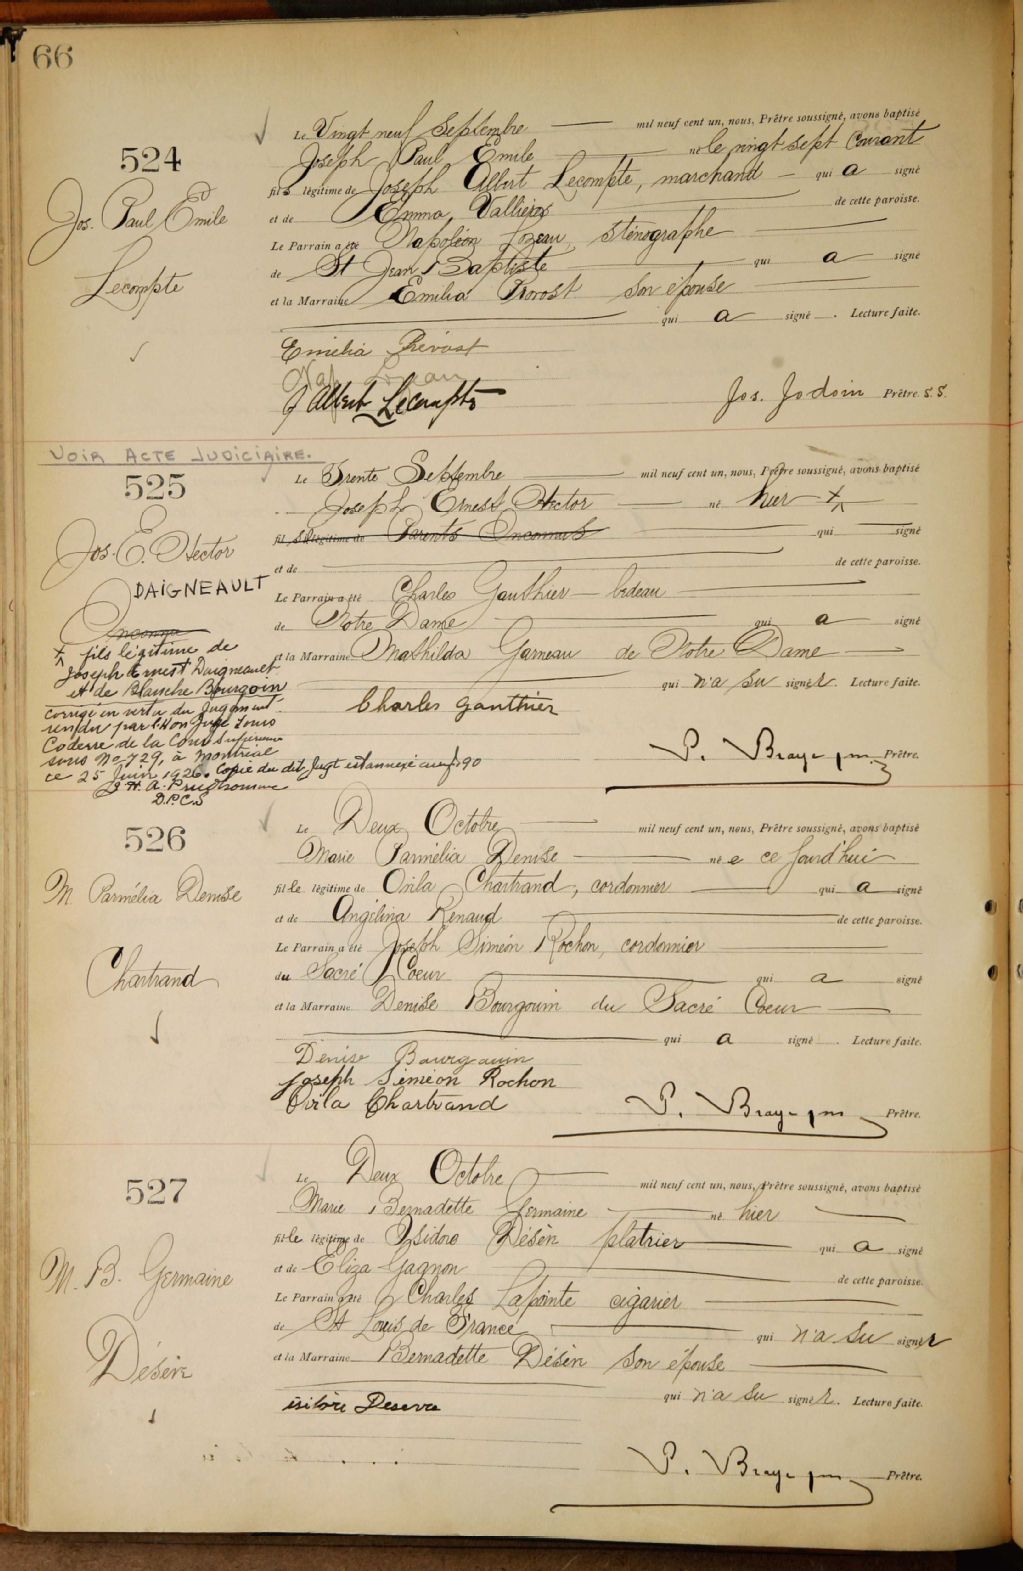 66
524
Jos. Paul Emile
Lecompte
Le Vingt neuf Septembre mil neuf cent un, nous, Prêtre soussigné, avons baptisé
Joseph Paul Emile né le vingt sept courant
fils légitime de Joseph Albert Lecompte, marchand qui a signé
et de Emma Vallières de cette paroisse.
Le Parrain a été Napoléon Lozeau, sténographe
de St Jean Baptiste qui a signé
et la Marraine Emilia Provost son épouse
qui a signé. Lecture faite.
Emélia Prévost
Nap Lozeau
J Albert Lecompte
Jos. Jodoin Prêtre S.S.
VOIR ACTE JUDICIAIRE.
525
Jos. E. Hector
DAIGNEAULT
Inconnu
fils légitime de
Joseph Ernest Daigneault
et de Blanche Bourgoin
corrigé en vertu du Jugement
rendu par l'Hon Juge Louis
Coderre de la Cour Supérieure
sous No 729, à Montréal
ce 25 Juin 1926. Copie du dit Jugt est annexé au fo 90
J. H. A. Prudhomme
D.P.C.S
Le Trente Septembre mil neuf cent un, nous, Prêtre soussigné, avons baptisé
Joseph Ernest Hector né hier
fils légitime de Parents Inconnus qui signé
et de de cette paroisse.
Le Parrain a été Charles Gauthier bedeau
de Notre Dame qui a signé
et la Marraine Mathilda Garneau de Notre Dame
qui n'a su signer. Lecture faite.
Charles Gauthier
P. Bray Prêtre.
526
M. Parmélia Denise
Chartrand
Le Deux Octobre mil neuf cent un, nous, Prêtre soussigné, avons baptisé
Marie Parmélia Denise née ce jourd'hui
fille légitime de Ovila Chartrand, cordonnier qui a signé
et de Angélina Renaud de cette paroisse.
Le Parrain a été Joseph Siméon Rochon, cordonnier
du Sacré Coeur qui a signé
et la Marraine Denise Bourgouin du Sacré Coeur
qui a signé. Lecture faite.
Denise Bourgouin
Joseph Siméon Rochon
Ovila Chartrand
P. Bray Prêtre.
527
M. B. Germaine
Désèn
Le Deux Octobre mil neuf cent un, nous, Prêtre soussigné, avons baptisé
Marie Bernadette Germaine né hier
fille légitime de Isidore Désèn platrier qui a signé
et de Eliza Gagnon de cette paroisse.
Le Parrain a été Charles Lapointe cigarier
de St Louis de France qui n'a su signer
et la Marraine Bernadette Désèn son épouse
qui n'a su signer. Lecture faite.
P. Bray Prêtre.